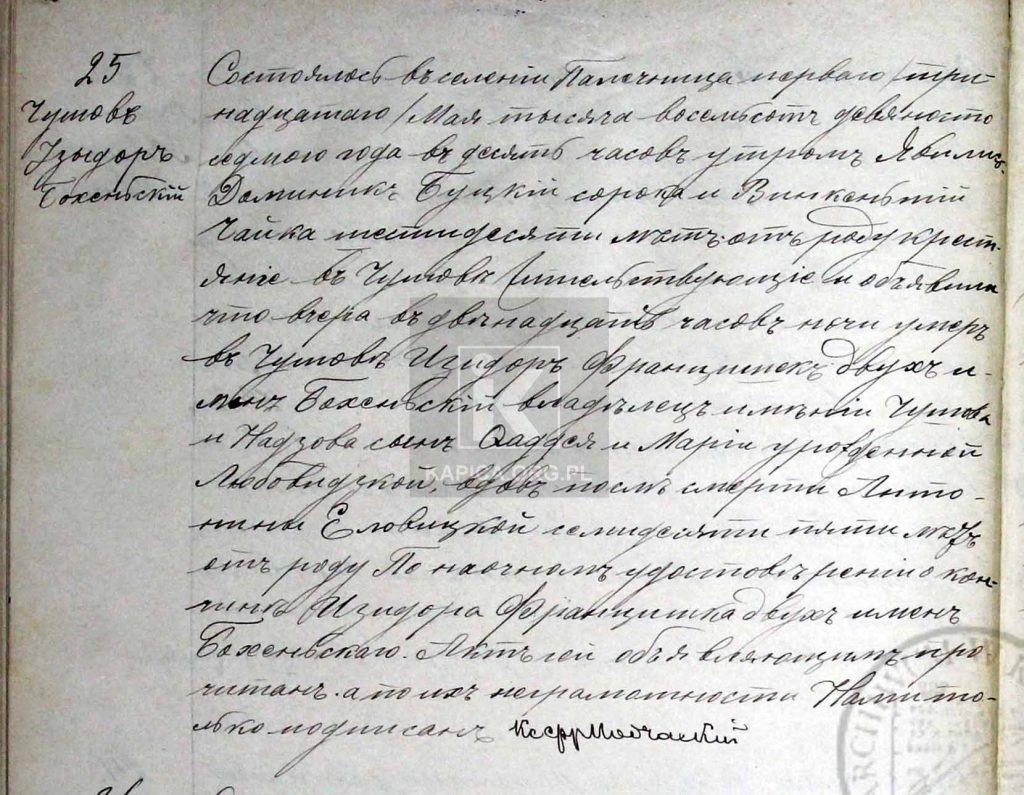 25
Чумовъ
Изыдоръ
Бохеньскій
Состоялось въ селеніи Палечница перваго /три-
надцатаго/ Мая тысяча восемьсотъ девяносто
седмого года въ десять часовъ утромъ Явились
Доминикъ Буцкій сорока и Винкентій
Чайка шестидесяти лѣтъ отъ роду крест-
яніе въ Чумовѣ жительствующіе и объявили
что вчера въ двѣнадцать часовъ ночи умеръ
въ Чумовѣ Изидоръ Францишекъ двухъ и-
менъ Бохеньскій владѣлецъ имѣній Чумова
и Надзова сынъ Фаддея и Маріи урожденной
Любовидзкой, вдовъ послѣ смерти Анто-
нины Еловицкой семидесяти пяти лѣтъ
отъ роду По наочномъ удостовѣреніи о кон-
чинѣ Изидора Францишка двухъ именъ
Бохеньскаго. Актъ сей объявляющимъ про
читанъ. а по ихъ неграмотности Нами то-
лько подписанъ
KAPICA.ORG.PL